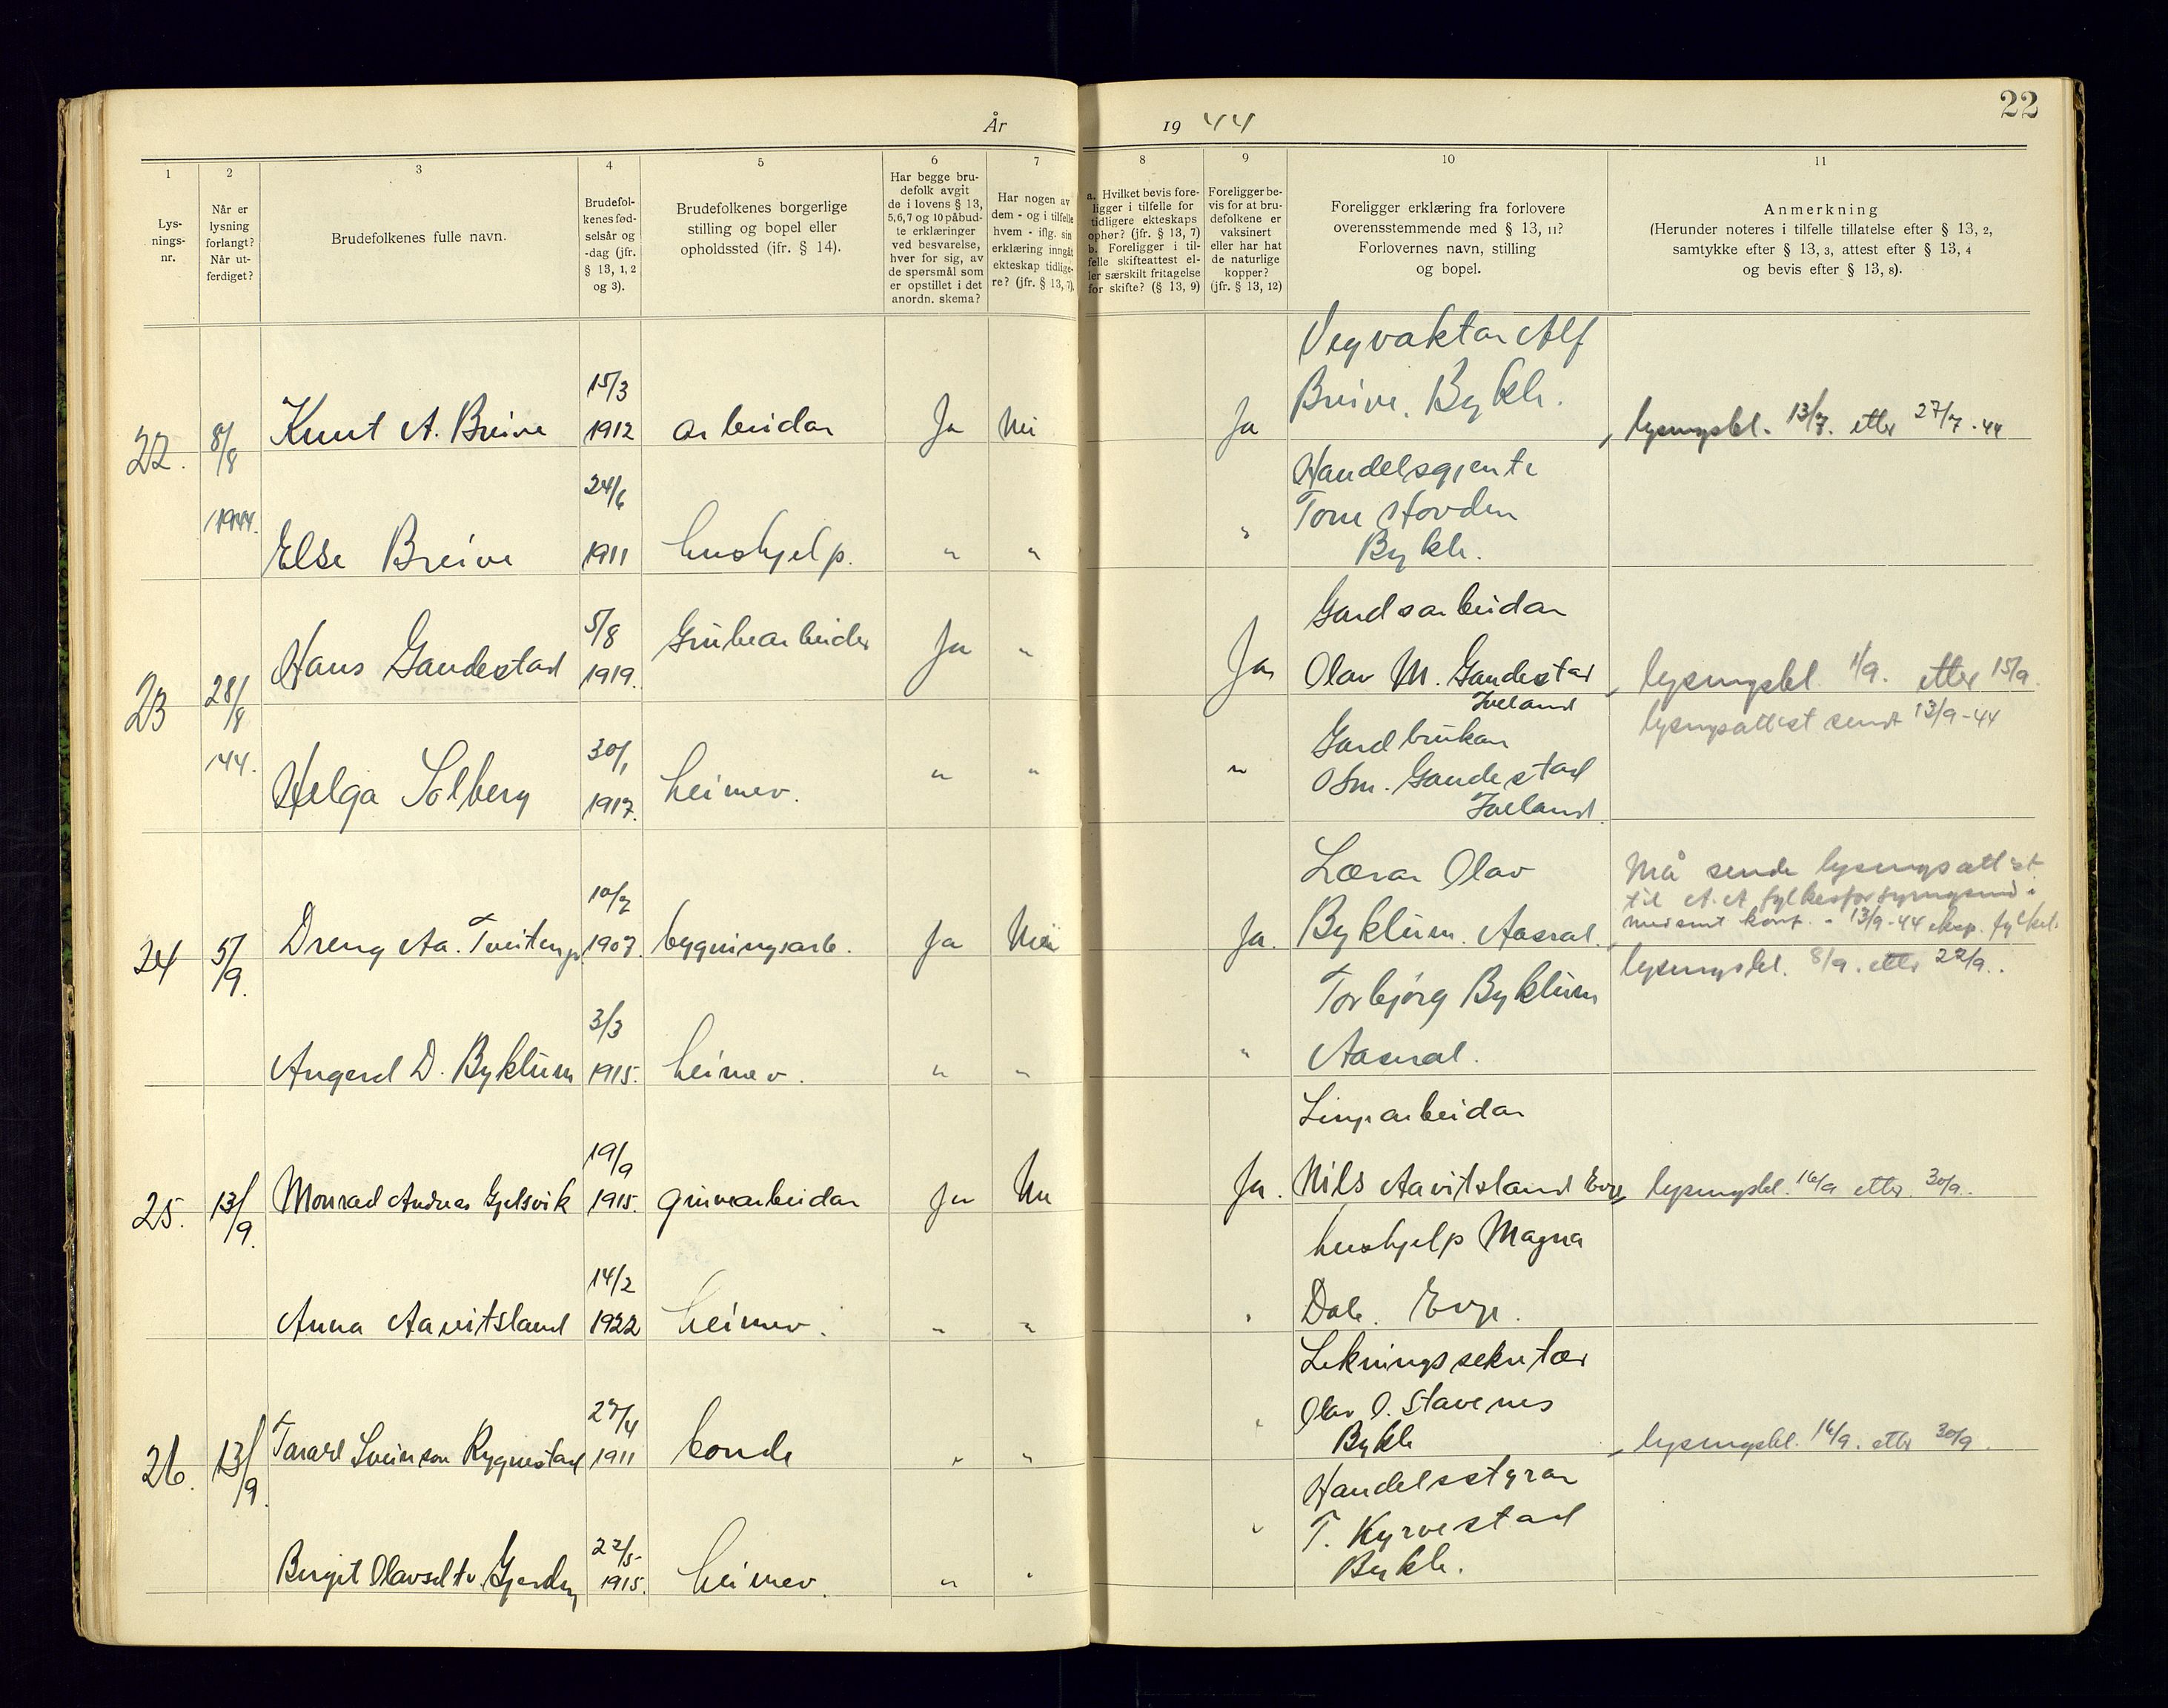 22
År 19 44
1 2 3 4 5 6 7 8 9 10 11
Lys-
nings-
nr.
Når er
lysning
forlangt?
Når ut-
ferdiget?
Brudefolkenes fulle navn.
Brudefol-
kenes fød-
selsår og
-dag (jfr.
§ 13, 1, 2
og 3).
Brudefolkenes borgerlige
stilling og bopel eller
opholdssted (jfr. § 14).
Har begge bru-
defolk avgit
de i lovens § 13,
5, 6, 7 og 10 påbud-
te erklæringer
ved besvarelse,
hver for sig, av
de spørsmål som
er opstillet i det
anordn. skema?
Har nogen av
dem - og i tilfelle
hvem - iflg. sin
erklæring inngåt
ekteskap tidlige-
re? (jfr. § 13, 7).
a. Hvilket bevis fore-
ligger i tilfelle for
tidligere ekteskaps
ophør? (jfr. § 13, 7)
b. Foreligger i til-
felle skifteattest el-
ler særskilt fritagelse
for skifte? (§ 13, 9)
Foreligger be-
vis for at bru-
defolkene er
vaksinert
eller har hat
de naturlige
kopper?
(jfr. § 13, 12)
Foreligger erklæring fra forlovere
overensstemmende med § 13, 11?
Forlovernes navn, stilling
og bopel.
Anmerkning
(Herunder noteres i tilfelle tillatelse efter § 13, 2,
samtykke efter § 13, 3, attest efter § 13, 4
og bevis efter § 13, 8).
22. 8/8 1944.
Knut A. Breive 15/3 1912 arbeidar Ja Nei Ja
Vegvaktar Alf
Breive. Bykle.
lysingsbl. 13/7. etter 27/7-44
Else Breive 24/6 1911 hushjelp. " " "
Handelsgjente
Tone Hovden
Bykle.
23 28/8 '44.
Hans Gaudestad 5/8 1919. Grubearbeider Ja " Ja
Gardsarbeidar
Olav M. Gaudestad
Iveland
lysingsbl. 1/9. etter 15/9.
lysingsattest sendt 13/9-44
Helga Solberg 30/1 1917. heimev. " " "
Gardbrukar
Osm. Gaudestad
Iveland.
24 5/9.
Dreng Aa. Tveiten 10/7 1907. bygningsarb. Ja Nei Ja.
Lærar Olav
Byklum. Aaseral.
Må sende lysingsattest
til A.A. fylkesforsyningsnd.
13/9-44 eksp.
lysingsbl. 8/9. etter 22/9.
Angerd D. Byklum 3/3 1915. heimev. " " "
Torbjørg Byklum
Aaseral.
25. 13/9.
Monrad Andreas Gjelsvik 19/9 1915. gruvearbeidar Ja Nei Ja.
Linjearbeidar
Nils Aavitsland Evje
lysingsbl. 16/9 etter 30/9.
Anna Aavitsland 14/2 1922 heimev. " " "
hushjelp Magna
Dale. Evje.
26. 13/9.
Tarald Sveinson Rygnestad 27/4 1911 bonde " " "
Likningssekretær
Olav O. Stavenes
Bykle
lysingsbl. 16/9. etter 30/9.
Birgit Olavsdtr. Gjerden 22/5- 1915. heimev. " " "
Handelsstyrar
T. Kyrvestad
Bykle.